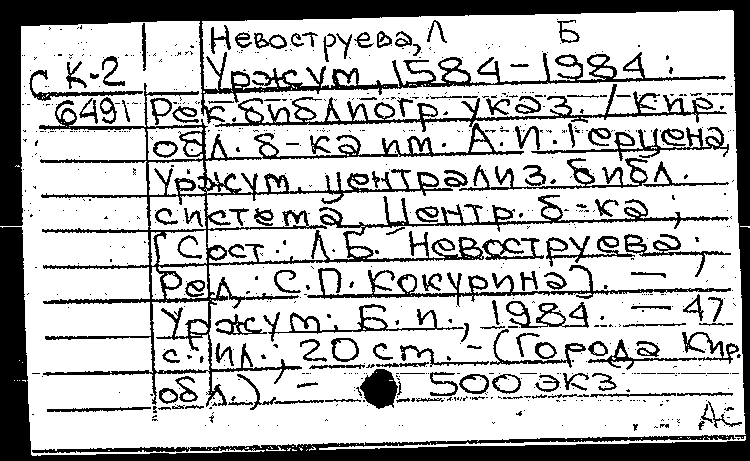 Невоструева, Л Б
С К-2 Уржум, 1584-1984:
6491 Рек. библиогр. указ. / Кир.
обл. б-ка им. А.И. Герцена,
Уржум. централиз. библ.
система, Центр. б-ка;
[Сост.: Л.Б. Невоструева;
Ред.: С.П. Кокурина]. —
Уржум: Б.и., 1984. — 47
с.: ил.; 20 см. - (Города Кир.
обл.). - 500 экз.
АС